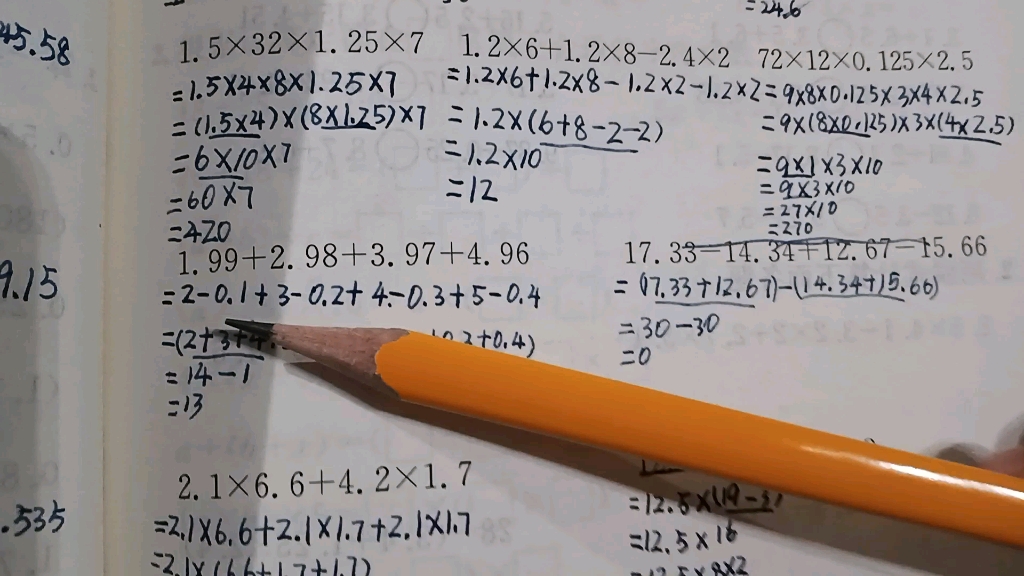 =24.6
45.58
1.5×32×1.25×7
=1.5×4×8×1.25×7
=(1.5×4)×(8×1.25)×7
=6×10×7
=60×7
=420
1.2×6+1.2×8−2.4×2
=1.2×6+1.2×8−1.2×2−1.2×2
=1.2×(6+8−2−2)
=1.2×10
=12
72×12×0.125×2.5
=9×8×0.125×3×4×2.5
=9×(8×0.125)×3×(4×2.5)
=9×1×3×10
=9×3×10
=27×10
=270
9.15
1.99+2.98+3.97+4.96
=2-0.1+3-0.2+4-0.3+5-0.4
=(2+3+4 0.3+0.4)
=14-1
=13
17.33−14.34+12.67−15.66
=(17.33+12.67)-(14.34+15.66)
=30-30
=0
.535
2.1×6.6+4.2×1.7
=2.1×6.6+2.1×1.7+2.1×1.7
=2.1×(6.6+1.7+1.7)
=12.5×(19-3)
=12.5×16
=12.5×8×2